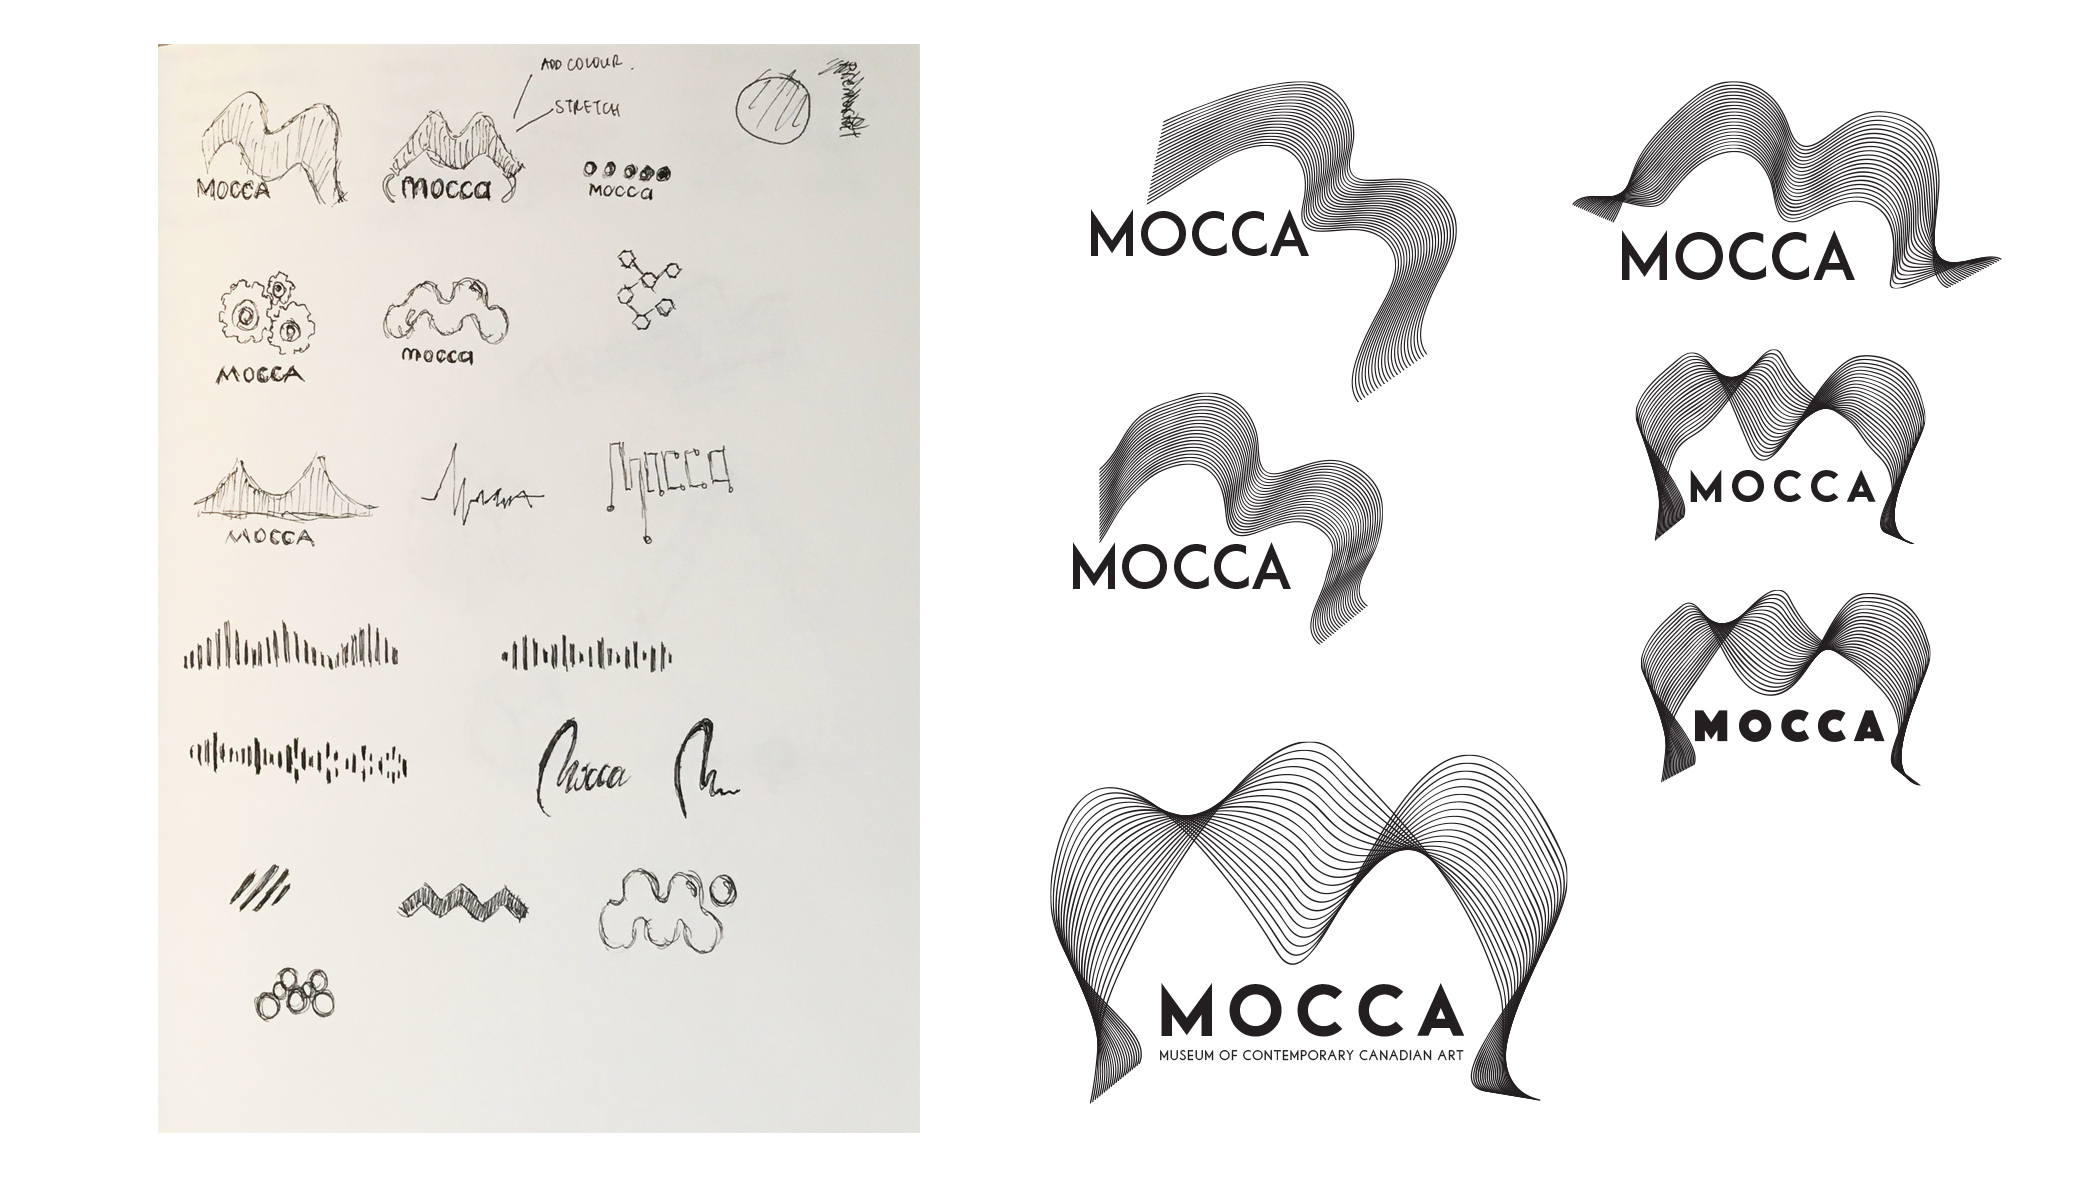 ADD COLOUR.
STRETCH
MOCCA
mocca
mocca
MOCCA
mocca
MOCCA
Mocca
Mocca
MOCCA
MOCCA
MOCCA
MOCCA
MOCCA
MOCCA
MUSEUM OF CONTEMPORARY CANADIAN ART